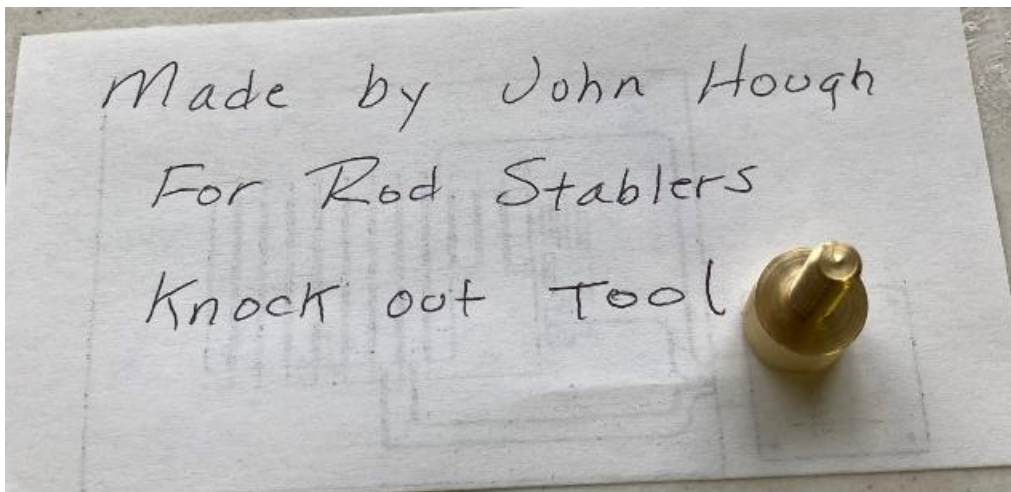 Made by John Hough
For Rod Stablers
Knock out Tool